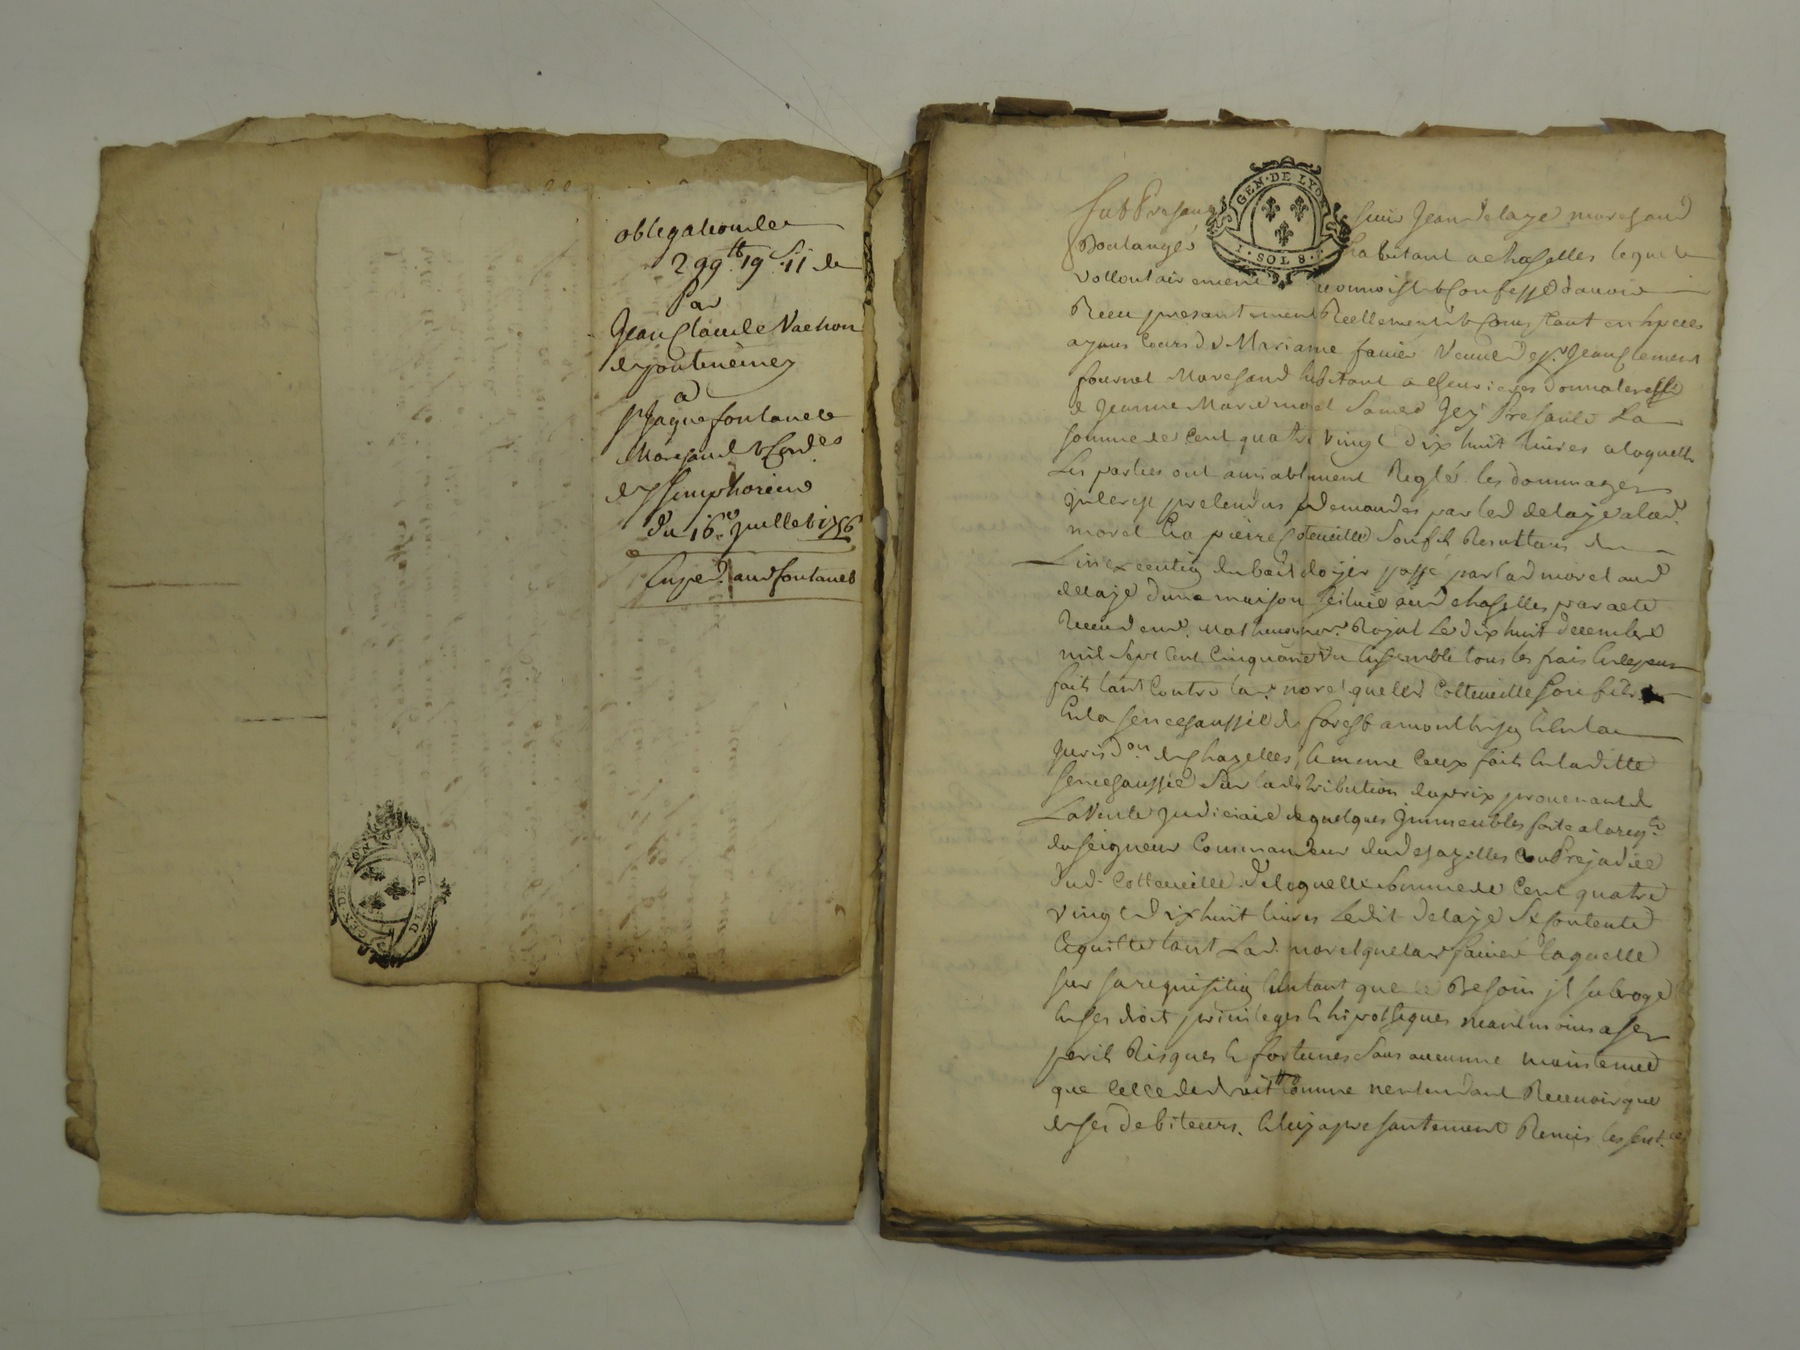 obligation de
299 # 19 s. 11 de
Par
Jean Claude Vachon
de
a
Sr Jaque fontanel
Marchand &
de St Simphorien
du 16e juillet 1756
Exped. aud fontanel
GEN·DE LYON
DIX DEN
GEN·DE LYO
1·SOL 8·
fut Presant sieur Jean delaye marchand
Boulanger habitant a chaselles lequel
vollontairement reconnoist & Confesse d'auoir
Receu presantement Reellement & Comptant en Especes
ayans Cours de Mariame fauier Veuue de Sr. Jean Clement
fournel Marchand habitant a donnateresse
de Jeanne Marie morel Jcy Presante La
somme de Cent quatre vingt dix huit liures a laquelle
Les parties ont amiablement Reglé les dommages
jnterest pretendus & demandés par led delaye a lad.
morel & a pierre Cotteueille son fils Resultans de
L'inexecution du bail a loyer passé par lad morel aud
delaye d'une maison scituée aud chaselles par acte
Receu dud. not. Royal Le dix huit decembre
mil sept Cent Cinquante un Ensemble tous les frais & depens
faits tant Contre lad. morel que led Cotteueille son fils
En la senechaussée de forest a montbrison & En la
Juris.on de Chazelles, & meme Ceux faits En laditte
senechaussée sur la distribution du prix prouenant de
La Vente Judiciaire de quelques Jmmeubles faite a la req.te
du seigneur Commandeur dud chazelles au Prejudice
dud. Cotteueille de laquelle somme de Cent quatre
vingt dix huit liures Ledit delaye se Contente
& quitte tant Lad. morel que lad fauier laquelle
sur sa requisition & Entant que de Besoin il subroge
En ses droit priuileges & hipotheques neantmoins a ses
peril Risques & fortunes sans aucunne maintenue
que Celle de droit Comme n'entendant Receuoir que
de ses debiteurs. & luy a presantement Remis les